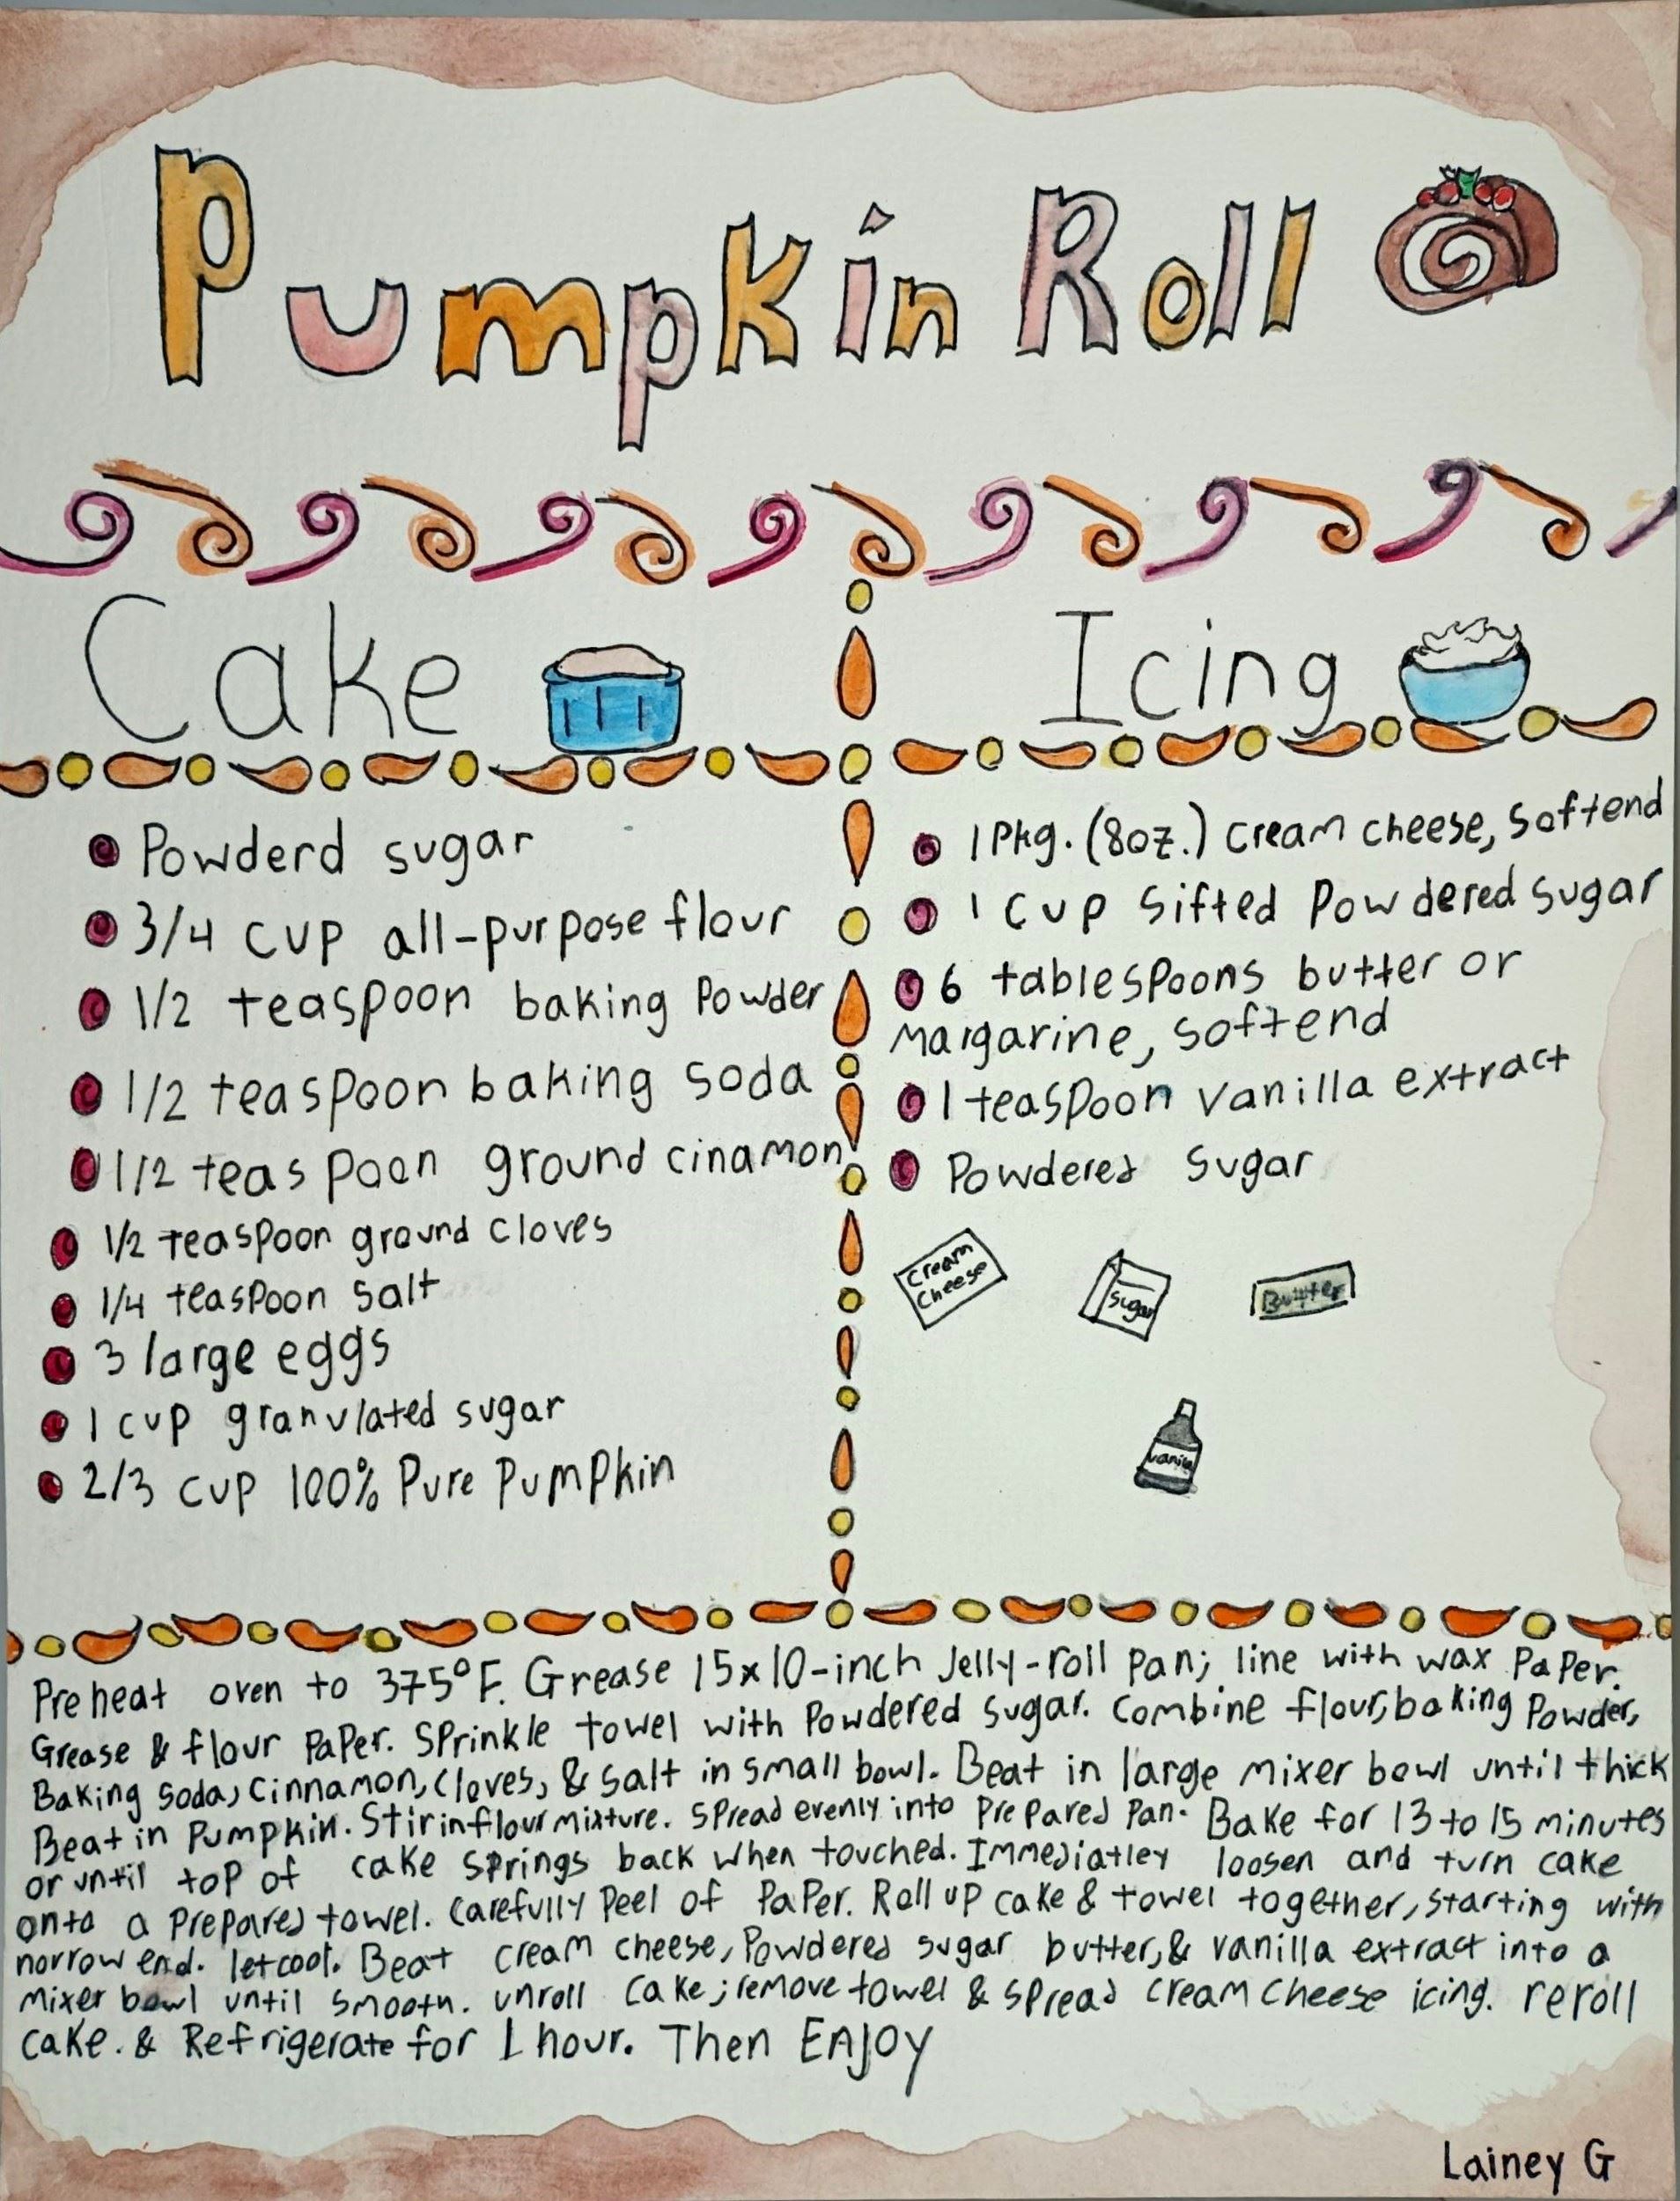 Pumpkin Roll
Cake
Powderd sugar
3/4 cup all-purpose flour
1/2 teaspoon baking Powder
1/2 teaspoon baking soda
1/2 teaspoon ground cinamon
1/2 teaspoon ground cloves
1/4 teaspoon salt
3 large eggs
1 cup granulated sugar
2/3 cup 100% Pure Pumpkin
Icing
1 Pkg. (8oz.) cream cheese, Softend
1 Cup Sifted Powdered Sugar
6 tablespoons butter or
Margarine, softend
1 teaspoon vanilla extract
Powdered Sugar
Cream
Cheese
Sugar
Butter
Vanilla
Preheat oven to 375°F. Grease 15x10-inch Jelly-roll pan; line with wax PaPer.
Grease & flour PaPer. Sprinkle towel with Powdered sugar. Combine flour, baking Powder,
Baking Soda, Cinnamon, Cloves, & Salt in small bowl. Beat in large mixer bowl until thick
Beat in Pumpkin. Stir in flour mixture. Spread evenly into PrePared Pan. Bake for 13 to 15 minutes
or until toP of cake springs back when touched. Immediatley loosen and turn cake
onto a PrePared towel. Carefully Peel of PaPer. Roll up cake & towel together, starting with
norrow end. let cool. Beat cream cheese, Powdered sugar butter, & vanilla extract into a
mixer bowl until smooth. unroll cake; remove towel & spread cream cheese icing. reroll
cake. & Refrigerate for 1 hour. Then EnJoy
Lainey G